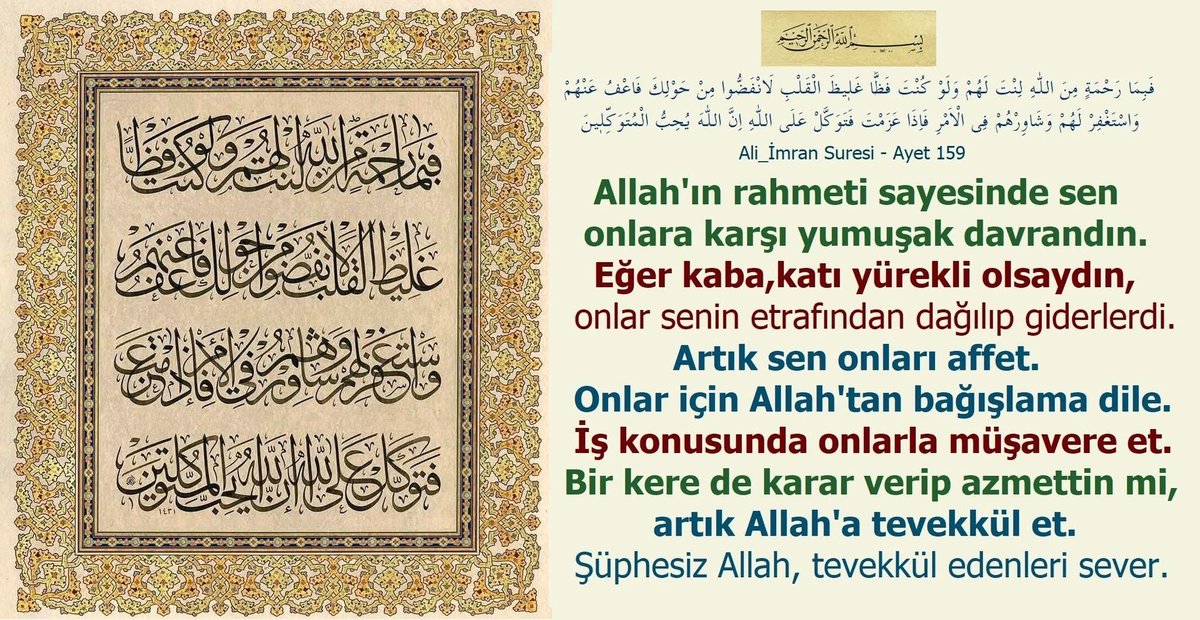 فبما رحمة من الله لنت لهم ولو كنت فظا
غليظ القلب لانفضوا من حولك فاعف عنهم
واستغفر لهم وشاورهم في الأمر فإذا عزمت
فتوكل على الله إن الله يحب المتوكلين
١٤٣١
بِسْمِ اللهِ الرَّحْمٰنِ الرَّحِيمِ
فَبِمَا رَحْمَةٍ مِنَ اللّٰهِ لِنْتَ لَهُمْ وَلَوْ كُنْتَ فَظًّا غَلٖيظَ الْقَلْبِ لَانْفَضُّوا مِنْ حَوْلِكَ فَاعْفُ عَنْهُمْ
وَاسْتَغْفِرْ لَهُمْ وَشَاوِرْهُمْ فِى الْاَمْرِ فَاِذَا عَزَمْتَ فَتَوَكَّلْ عَلَى اللّٰهِ اِنَّ اللّٰهَ يُحِبُّ الْمُتَوَكِّلٖينَ
Ali_İmran Suresi - Ayet 159
Allah'ın rahmeti sayesinde sen
onlara karşı yumuşak davrandın.
Eğer kaba,katı yürekli olsaydın,
onlar senin etrafından dağılıp giderlerdi.
Artık sen onları affet.
Onlar için Allah'tan bağışlama dile.
İş konusunda onlarla müşavere et.
Bir kere de karar verip azmettin mi,
artık Allah'a tevekkül et.
Şüphesiz Allah, tevekkül edenleri sever.